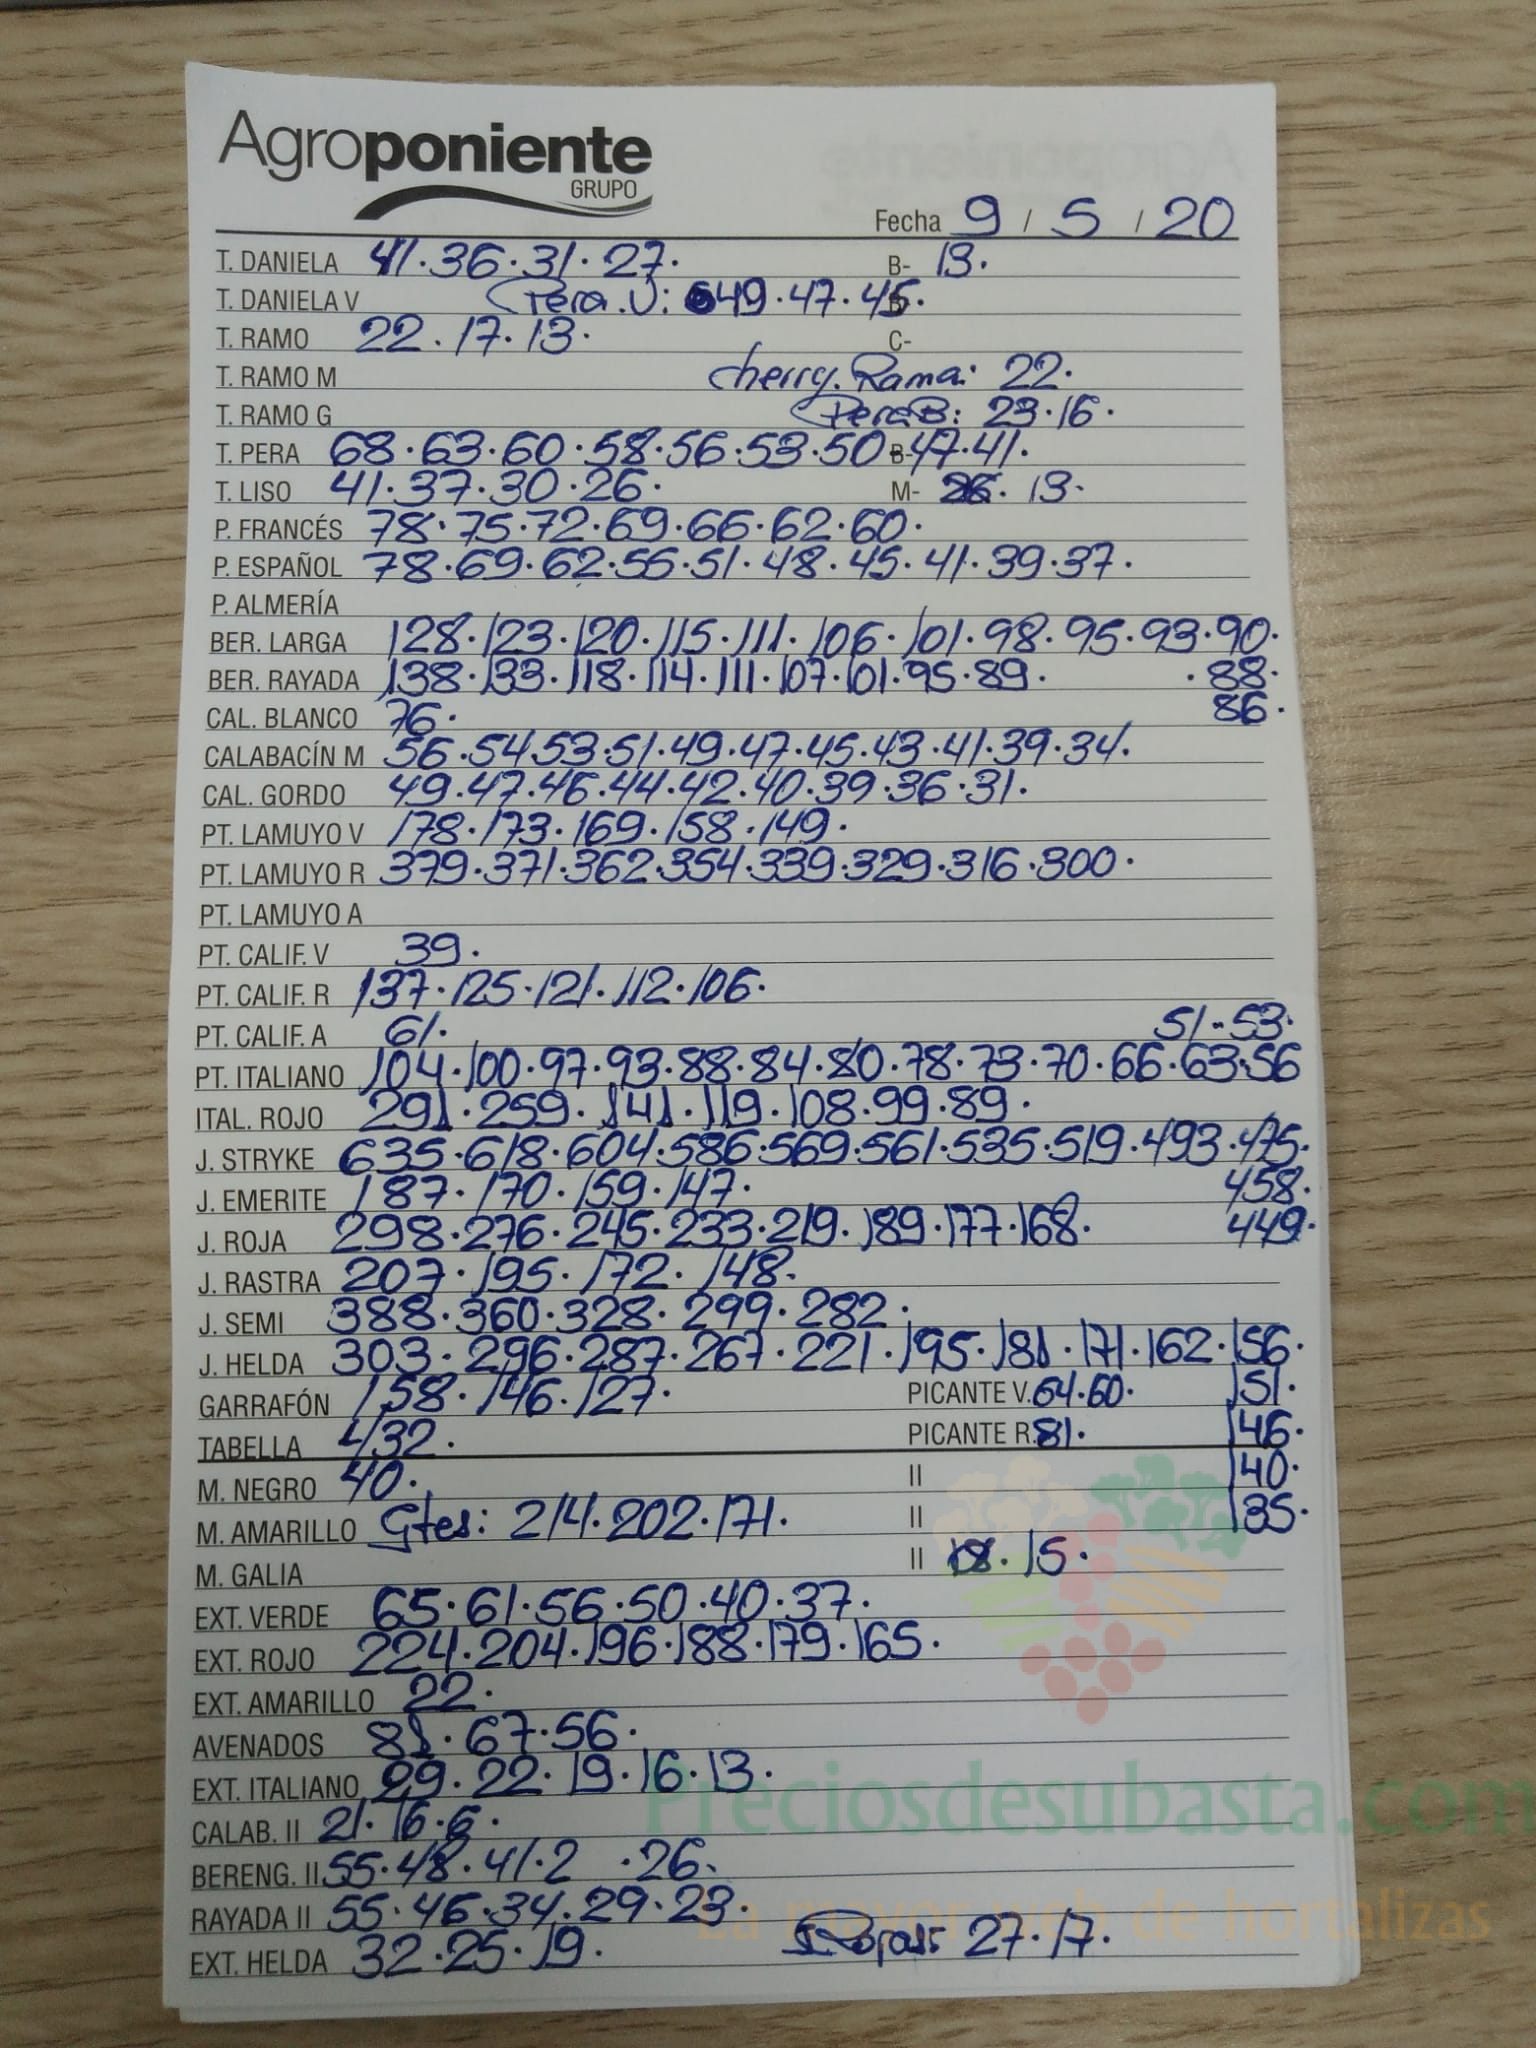 Agroponiente
GRUPO
Fecha 9 / 5 / 20
T. DANIELA 41.36.31.27. B- 13.
T. DANIELA V Pera.V: 49.47.45.
T. RAMO 22.17.13. C-
T. RAMO M Cherry.Rama: 22.
T. RAMO G Pera B: 23.16.
T. PERA 68.63.60.58.56.53.50 B- 47.41.
T. LISO 41.37.30.26. M- 26. 13.
P. FRANCÉS 78.75.72.69.66.62.60.
P. ESPAÑOL 78.69.62.55.51.48.45.41.39.37.
P. ALMERÍA
BER. LARGA 128.123.120.115.111.106.101.98.95.93.90.
BER. RAYADA 138.133.118.114.111.107.101.95.89. .88.
CAL. BLANCO 76. 86.
CALABACÍN M 56.54.53.51.49.47.45.43.41.39.34.
CAL. GORDO 49.47.46.44.42.40.39.36.31.
PT. LAMUYO V 178.173.169.158.149.
PT. LAMUYO R 379.371.362.354.339.329.316.300.
PT. LAMUYO A
PT. CALIF. V 39.
PT. CALIF. R 137.125.121.112.106.
PT. CALIF. A 61. 51-53.
PT. ITALIANO 104.100.97.93.88.84.80.78.73.70.66.63.56
ITAL. ROJO 291.259.141.119.108.99.89.
J. STRYKE 635.618.604.586.569.561.535.519.493.475.
J. EMERITE 187.170.159.147. 458.
J. ROJA 298.276.245.233.219.189.177.168. 449.
J. RASTRA 207.195.172.148.
J. SEMI 388.360.328.299.282.
J. HELDA 303.296.287.267.221.195.181.171.162.156.
GARRAFÓN 158.146.127. PICANTE V. 64.60. 151.
TABELLA 432. PICANTE R. 81. 146.
M. NEGRO 40. II 140.
M. AMARILLO Gtes: 214.202.171. II 135.
M. GALIA II 18.15.
EXT. VERDE 65.61.56.50.40.37.
EXT. ROJO 224.204.196.188.179.165.
EXT. AMARILLO 22.
AVENADOS 81.67.56.
EXT. ITALIANO 29.22.19.16.13.
Preciosdesubasta.com
CALAB. II 21.16.6.
BERENG. II 55.48.41.2 .26.
RAYADA II 55.46.34.29.23.
La mayor web de hortalizas
EXT. HELDA 32.25.19. 27.17.